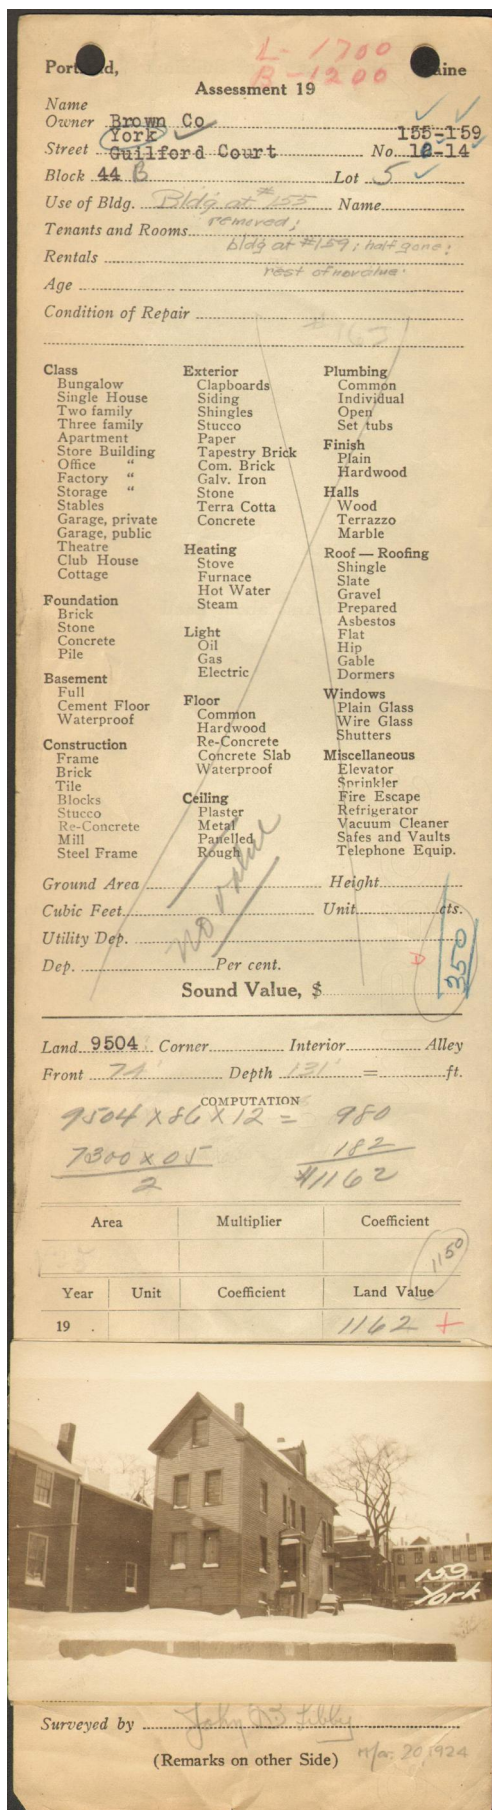 L- 1700
B-1200
Portland, Maine
Assessment 19
Name
Owner Brown Co
York 155-159
Street Guilford Court No. 12-14
Block 44 B Lot 5
Use of Bldg. Bldg at #155 Name
removed;
Tenants and Rooms
bldg at #159; half gone;
Rentals
rest of no value.
Age
Condition of Repair
Class
Bungalow
Single House
Two family
Three family
Apartment
Store Building
Office "
Factory "
Storage "
Stables
Garage, private
Garage, public
Theatre
Club House
Cottage
Foundation
Brick
Stone
Concrete
Pile
Basement
Full
Cement Floor
Waterproof
Construction
Frame
Brick
Tile
Blocks
Stucco
Re-Concrete
Mill
Steel Frame
Exterior
Clapboards
Siding
Shingles
Stucco
Paper
Tapestry Brick
Com. Brick
Galv. Iron
Stone
Terra Cotta
Concrete
Heating
Stove
Furnace
Hot Water
Steam
Light
Oil
Gas
Electric
Floor
Common
Hardwood
Re-Concrete
Concrete Slab
Waterproof
Ceiling
Plaster
Metal
Panelled
Rough
Plumbing
Common
Individual
Open
Set tubs
Finish
Plain
Hardwood
Halls
Wood
Terrazzo
Marble
Roof — Roofing
Shingle
Slate
Gravel
Prepared
Asbestos
Flat
Hip
Gable
Dormers
Windows
Plain Glass
Wire Glass
Shutters
Miscellaneous
Elevator
Sprinkler
Fire Escape
Refrigerator
Vacuum Cleaner
Safes and Vaults
Telephone Equip.
no value
Ground Area Height
Cubic Feet Unit cts.
Utility Dep.
Dep. Per cent.
350
Sound Value, $
Land 9504 Corner Interior Alley
Front 74' Depth 131' = ft.
COMPUTATION
9504 X 86 X 12 = 980
7300 X 05 182
2 $1162
Area Multiplier Coefficient
1150
Year Unit Coefficient Land Value
19 . 1162 +
159
York
Surveyed by John B Libby
(Remarks on other Side) Mar. 20, 1924